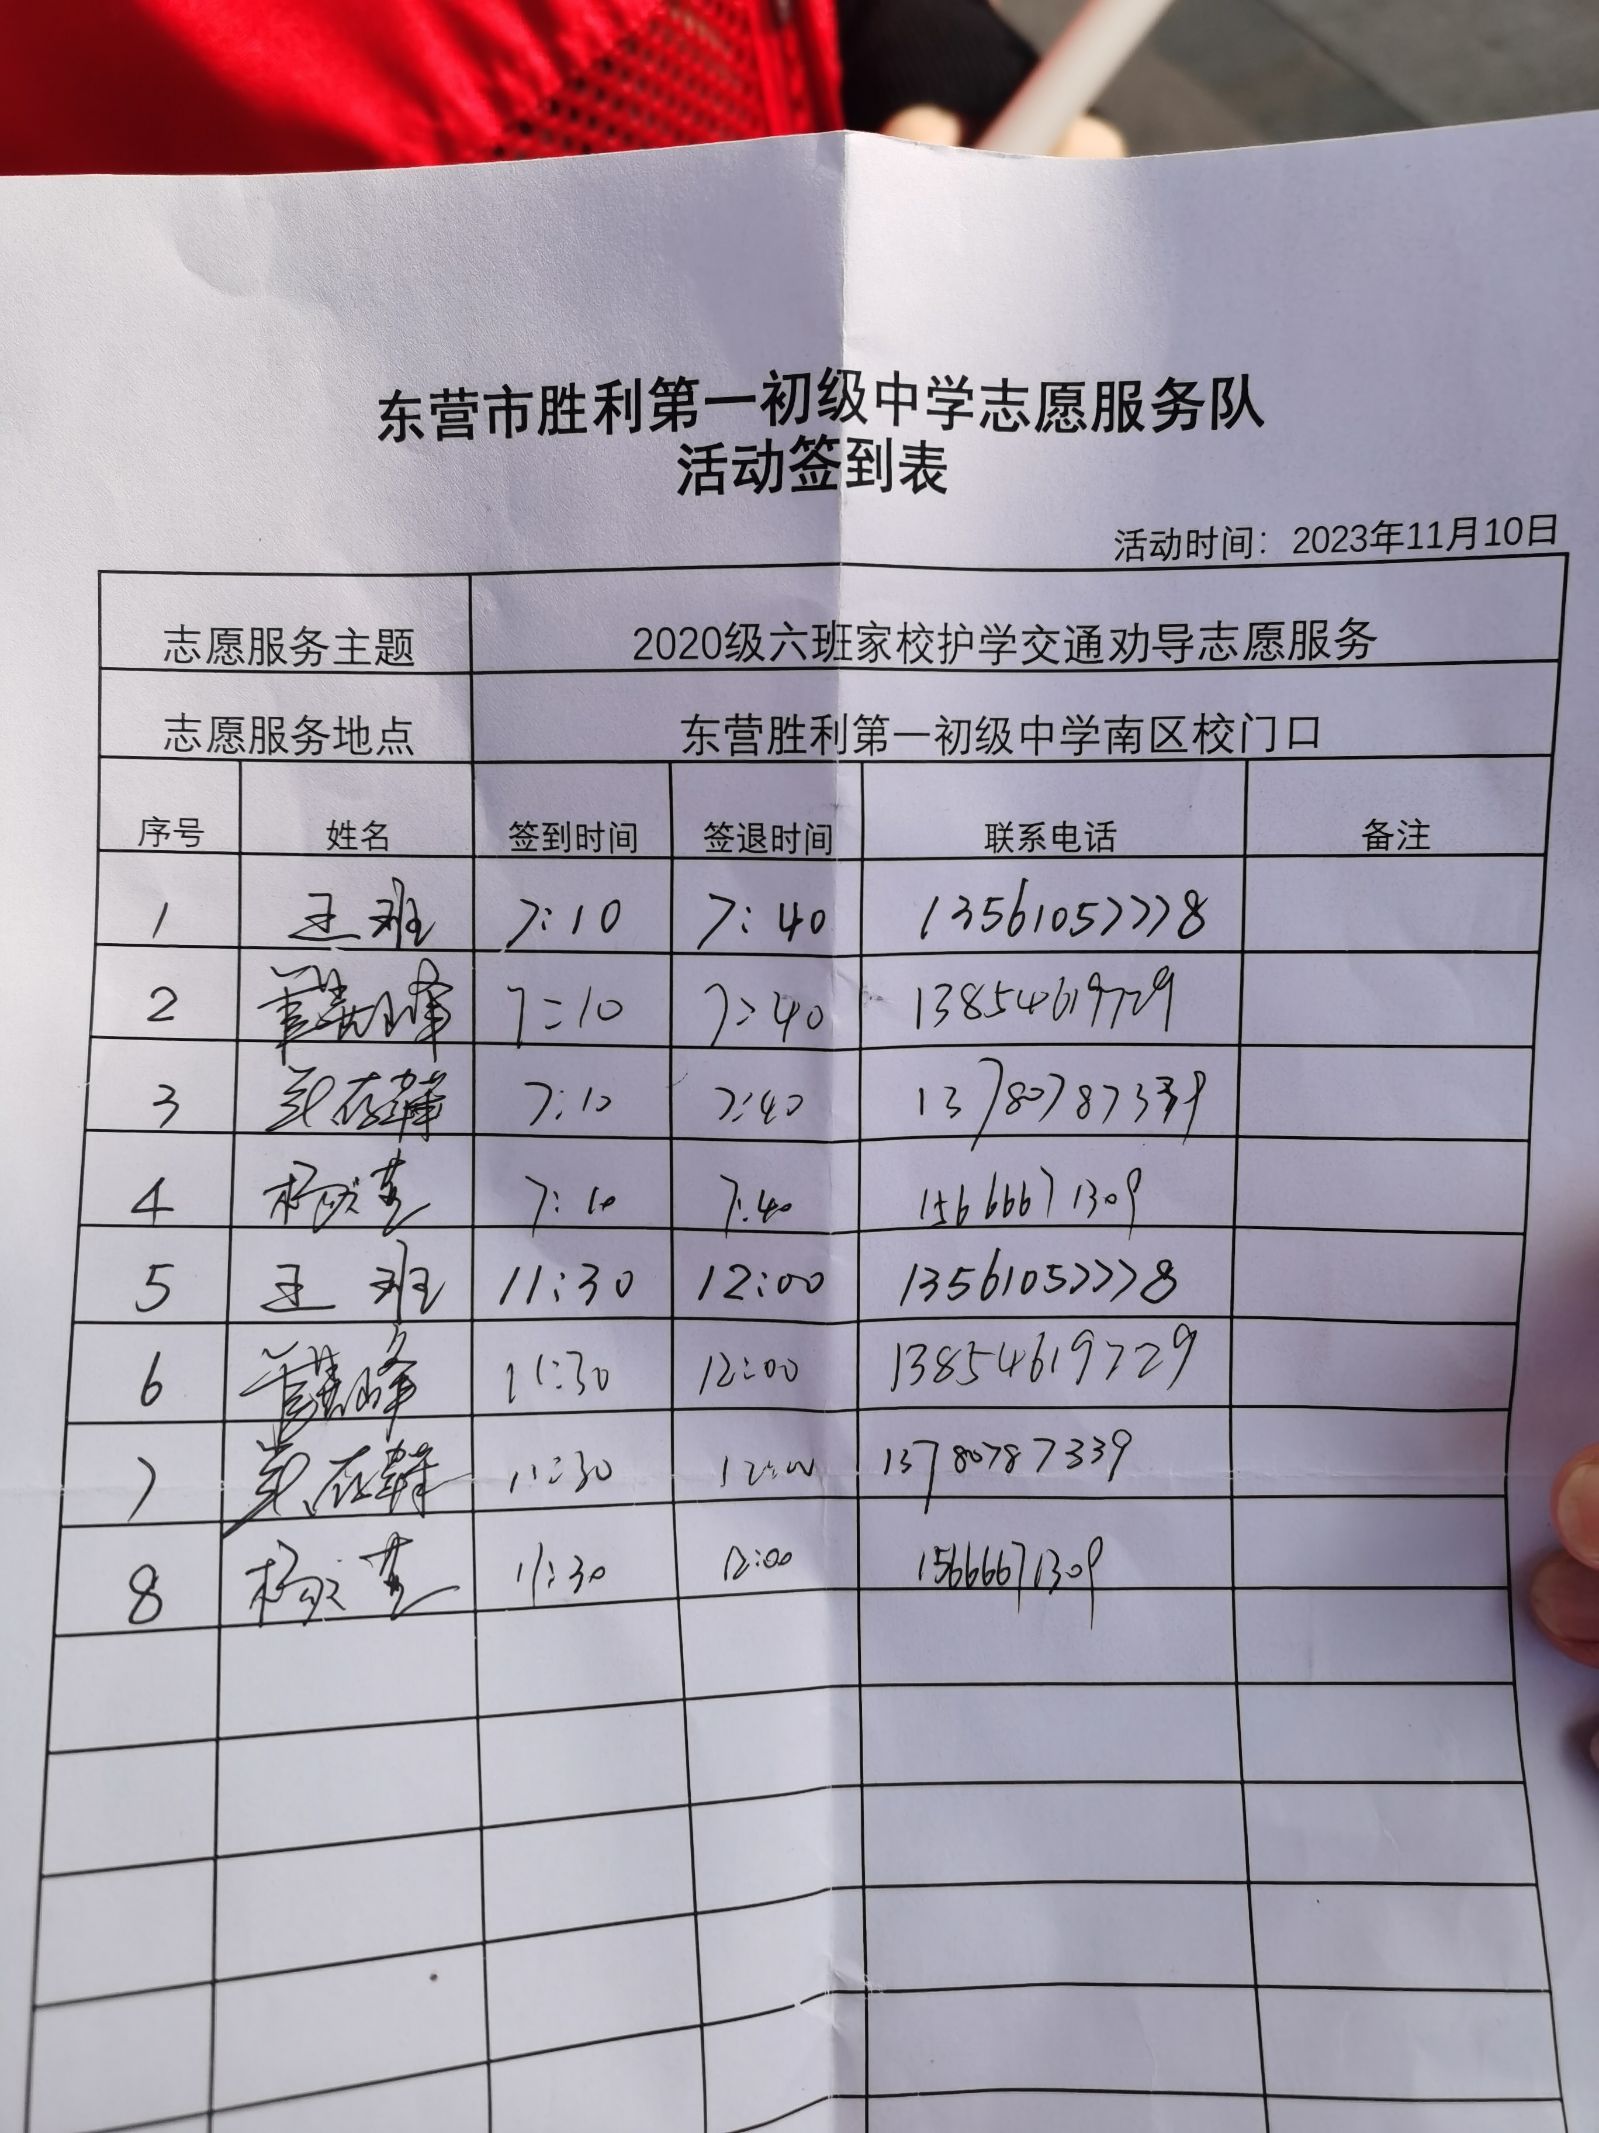 东营市胜利第一初级中学志愿服务队
活动签到表
活动时间：2023年11月10日
志愿服务主题 2020级六班家校护学交通劝导志愿服务
志愿服务地点 东营胜利第一初级中学南区校门口
序号 姓名 签到时间 签退时间 联系电话 备注
1 王班 7:10 7:40 13561057778
2 7:10 7:40 13854619729
3 7:10 7:40 13780787339
4 7:10 7:40 15666671309
5 王班 11:30 12:00 13561057778
6 11:30 12:00 13854619729
7 11:30 12:00 13780787339
8 11:30 12:00 15666671309